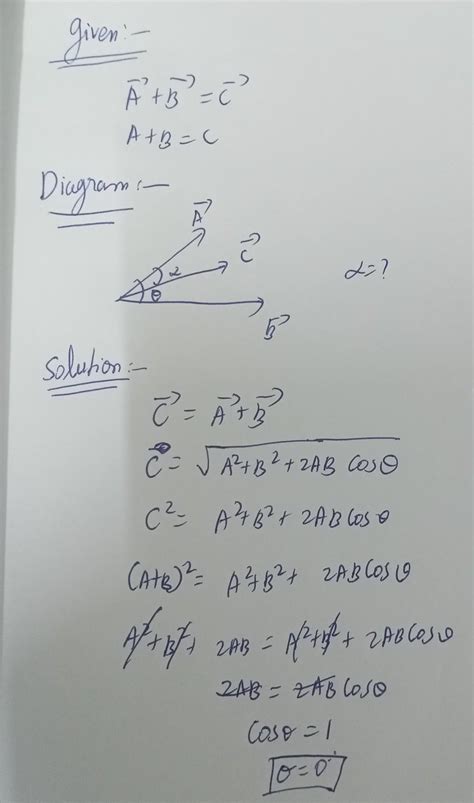 Given:-
A⃗ + B⃗ = C⃗
A + B = C
Diagram:-
A⃗
C⃗
α
θ
α = ?
B⃗
Solution:-
C⃗ = A⃗ + B⃗
C = √(A² + B² + 2AB Cosθ)
C² = A² + B² + 2AB Cosθ
(A+B)² = A² + B² + 2AB Cosθ
A² + B² + 2AB = A² + B² + 2AB Cosθ
2AB = 2AB Cosθ
Cosθ = 1
θ = 0°